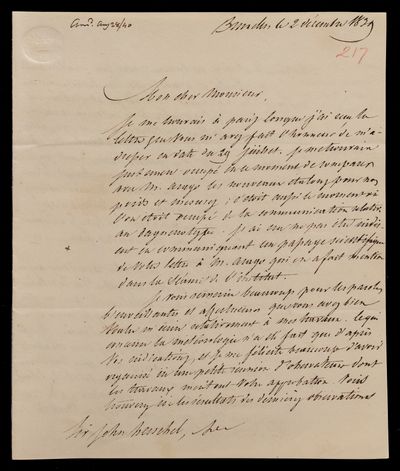 Ansd. Aug 28/40
Bruxelles le 2 décembre 1839
217
Mon cher Monsieur,
Je me trouvais à paris lorsque j'ai reçu la
lettre que vous m'avez fait l'honneur de m'a-
dresser en date du 29 Juillet. je me trouvais
justement occupé en ce moment de comparer
avec Mr. Arago les nouveaux étalons pour nos
poids et mesures; c'était aussi le moment où
l'on était occupé de la communication relative
au Daguerotype. J'ai cru ne pas être indis-
cret en communiquant un passage scientifique
de votre lettre à Mr. Arago qui en a fait mention
dans la Séance de l'institut.
Je vous remercie beaucoup pour les paroles
bienveillantes et affectueuses que vous avez bien
voulu m'écrire relativement à mes travaux. Ce qui
concerne la météorologie n'a été fait que d'après
vos indications, et je me félicite beaucoup d'avoir
organisé ici une petite réunion d'observateurs dont
les travaux méritent votre approbation. Vous
trouverez ici les résultats des dernières observations
Sir John Herschel, &c